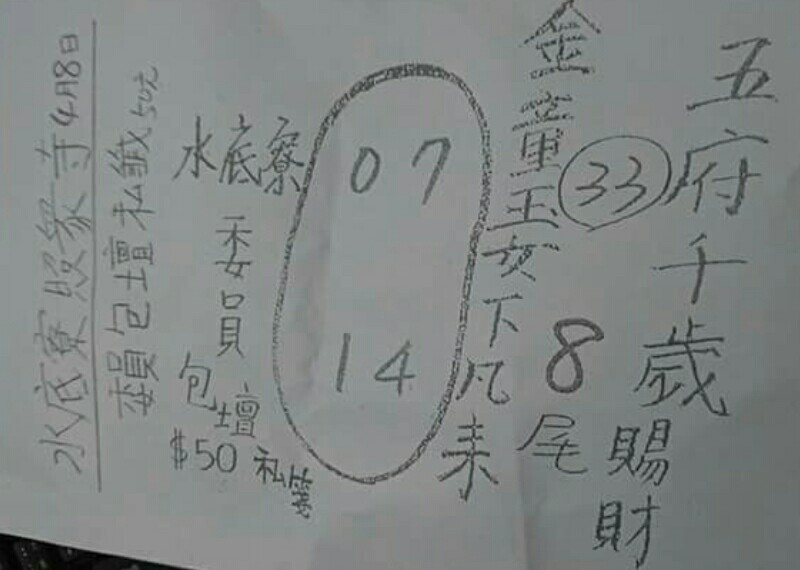 五府千歲
賜財
33
8尾
金童玉女下凡來
07
14
水底寮
委員
包壇
$50 私簽
委員包壇私籤50元
水底寮股眾寺4月8日